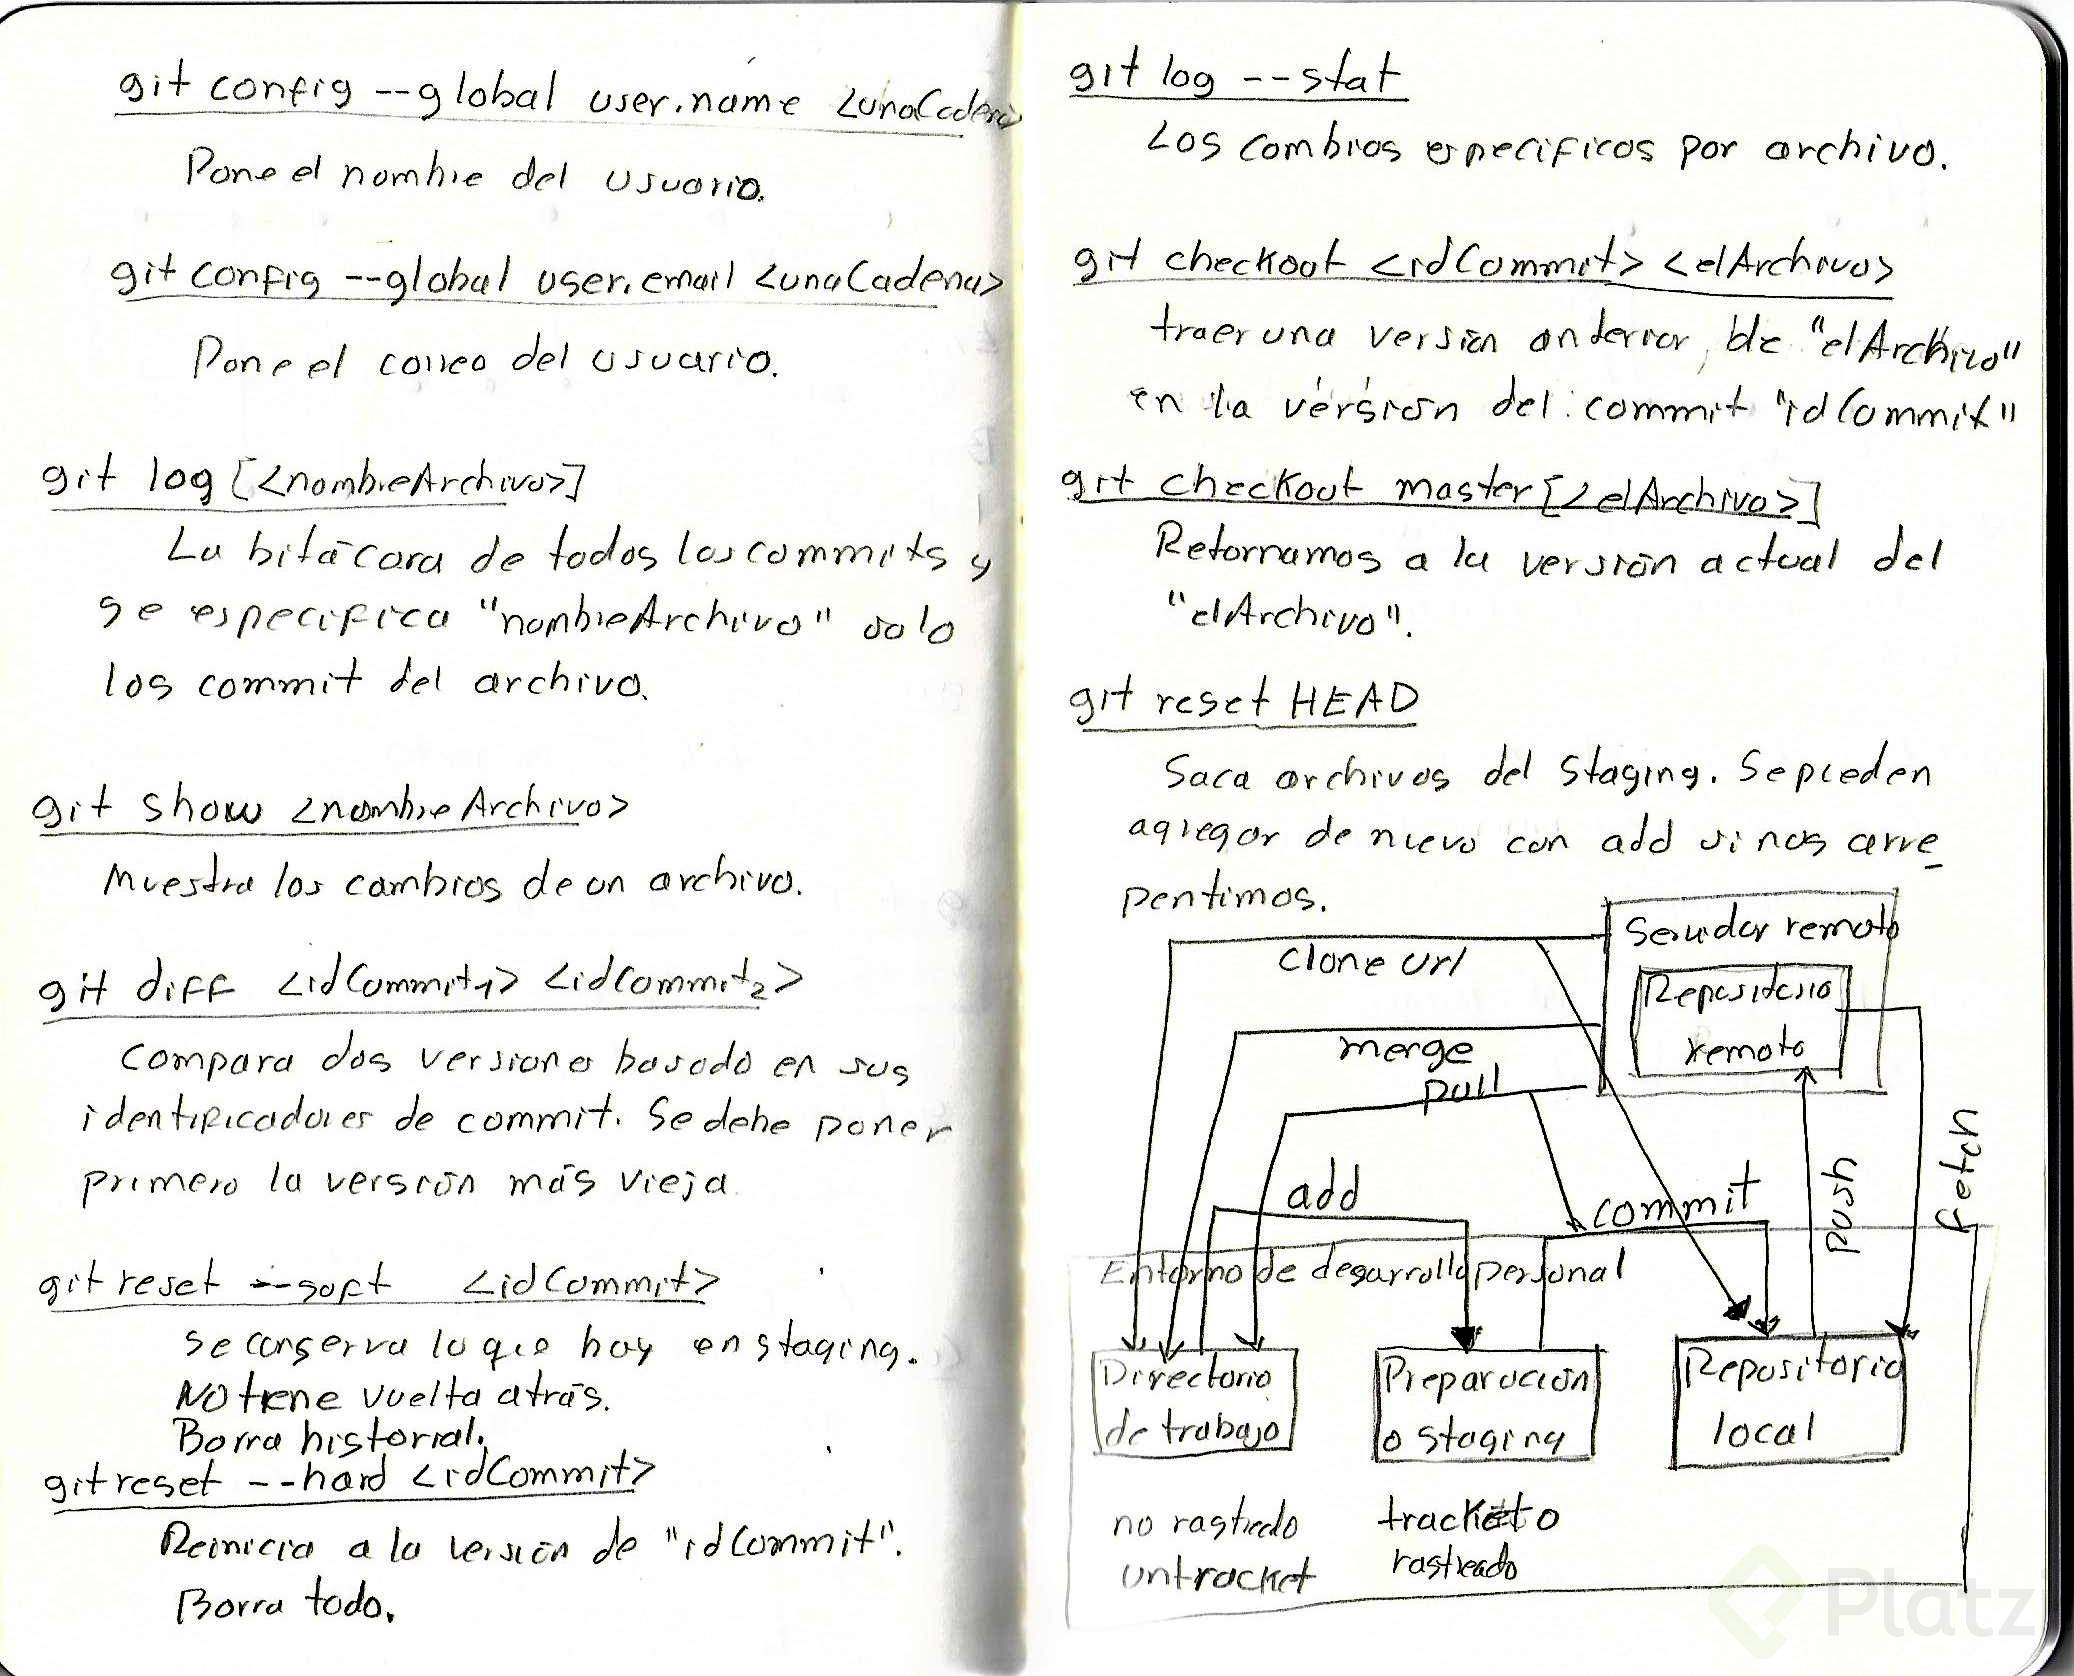 git config --global user.name <unaCadena>
Pone el nombre del usuario.
git config --global user.email <unaCadena>
Pone el correo del usuario.
git log [<nombreArchivo>]
La bitácora de todos los commits y
se especifica "nombreArchivo" solo
los commit del archivo.
git show <nombreArchivo>
Muestra los cambios de un archivo.
git diff <idCommit1> <idCommit2>
Compara dos versiones basado en sus
identificadores de commit. Se debe poner
primero la versión más vieja
git reset --soft <idCommit>
se conserva lo que hay en staging.
NO tiene vuelta atrás.
Borra historial.
git reset --hard <idCommit>
Reinicia a la versión de "idCommit".
Borra todo.
git log --stat
Los cambios especificos por archivo.
git checkout <idCommit> <elArchivo>
traer una versión anterior, de "elArchivo"
en la versión del commit "idCommit"
git checkout master [<elArchivo>]
Retornamos a la versión actual del
"elArchivo".
git reset HEAD
Saca archivos del staging. Se pueden
agregar de nuevo con add si nos arre_
pentimos.
Servidor remoto
clone url
Repositorio
remoto
merge
pull
fetch
push
add
commit
Entorno de desarrollo personal
Directorio
de trabajo
Preparación
o staging
Repositorio
local
no rastredo
untracket
tracketo
rastreado
Platzi